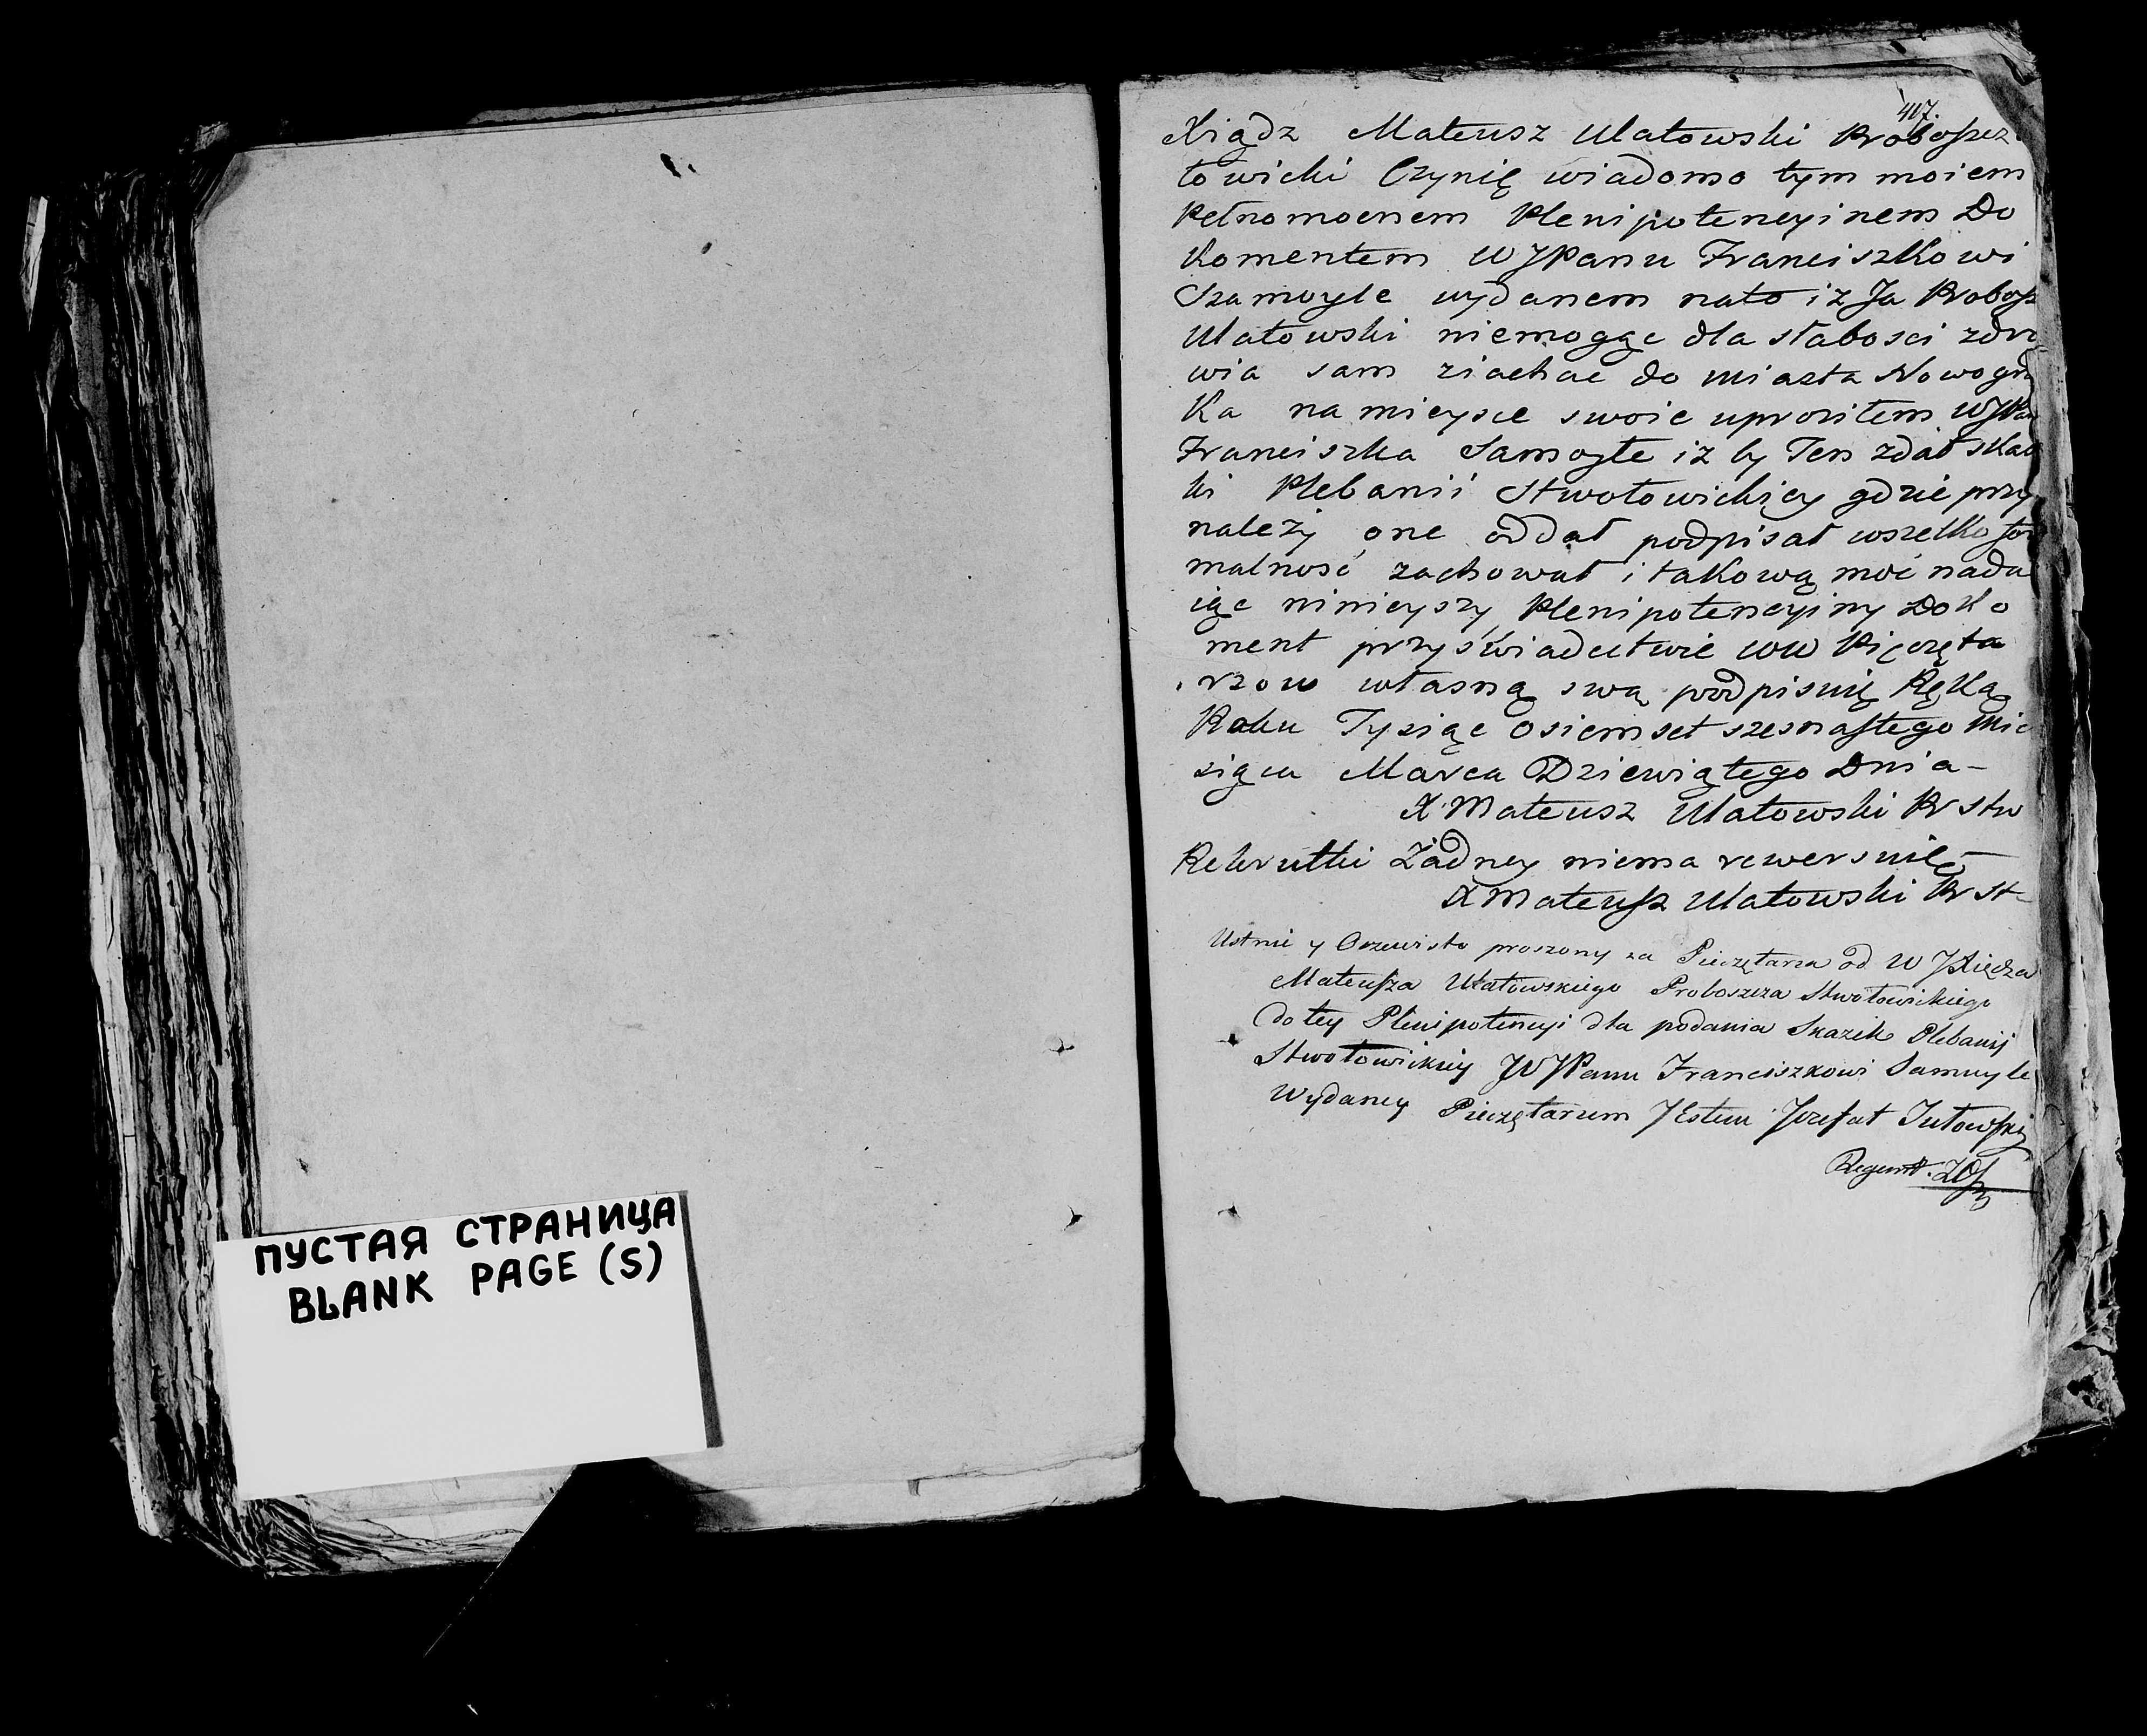 ПУСТАЯ СТРАНИЦА
BLANK PAGE (S)
417.
Xiądz Mateusz Ułatowski Proboszcz
łowicki Czynię wiadomo tym moiem
Pełnomocnem Plenipotencyinem Do
komentem WJPanu Franciszkowi
Szamoyle wydanem nato iż Ja Probosz
Ułatowski niemogąc dla słabosci zdro
wia sam ziachac do Miasta Nowogrud
ka na mieysce swoie uprosiłem WJPan
Franciszka Samoyłe iż by Ten zdał skaz
ki Plebanii Stwołowickiey gdzie przy
należy one oddał podpisał wszelko for
malność zachował i takową moc nada
iąc ninieyszy Plenipotencyiny Doko
ment przyświadectwie WW Pięczęta
rzow własną swą podpisuię Ręką
Roku Tysiąc Osiemset szesnastego Mie
siąca Marca Dziewiątego Dnia -
X Mateusz Ułatowski Pr Stw
Rekrutki Żadney niema rewersuię -
X Mateusz Ułatowski Pr St
Ustnie y Oczewisto proszony za Pieczętarza od W JXiędza
Mateusza Ułatowskiego Proboszcza Stwołowickiego
do tey Plenipotencyi dla podania Skazek Plebanij
Stwołowickiey WJPanu Franciszkowi Samuyle
Wydaney Pieczętarzem Jestem Jozefat Jutowski
Regent